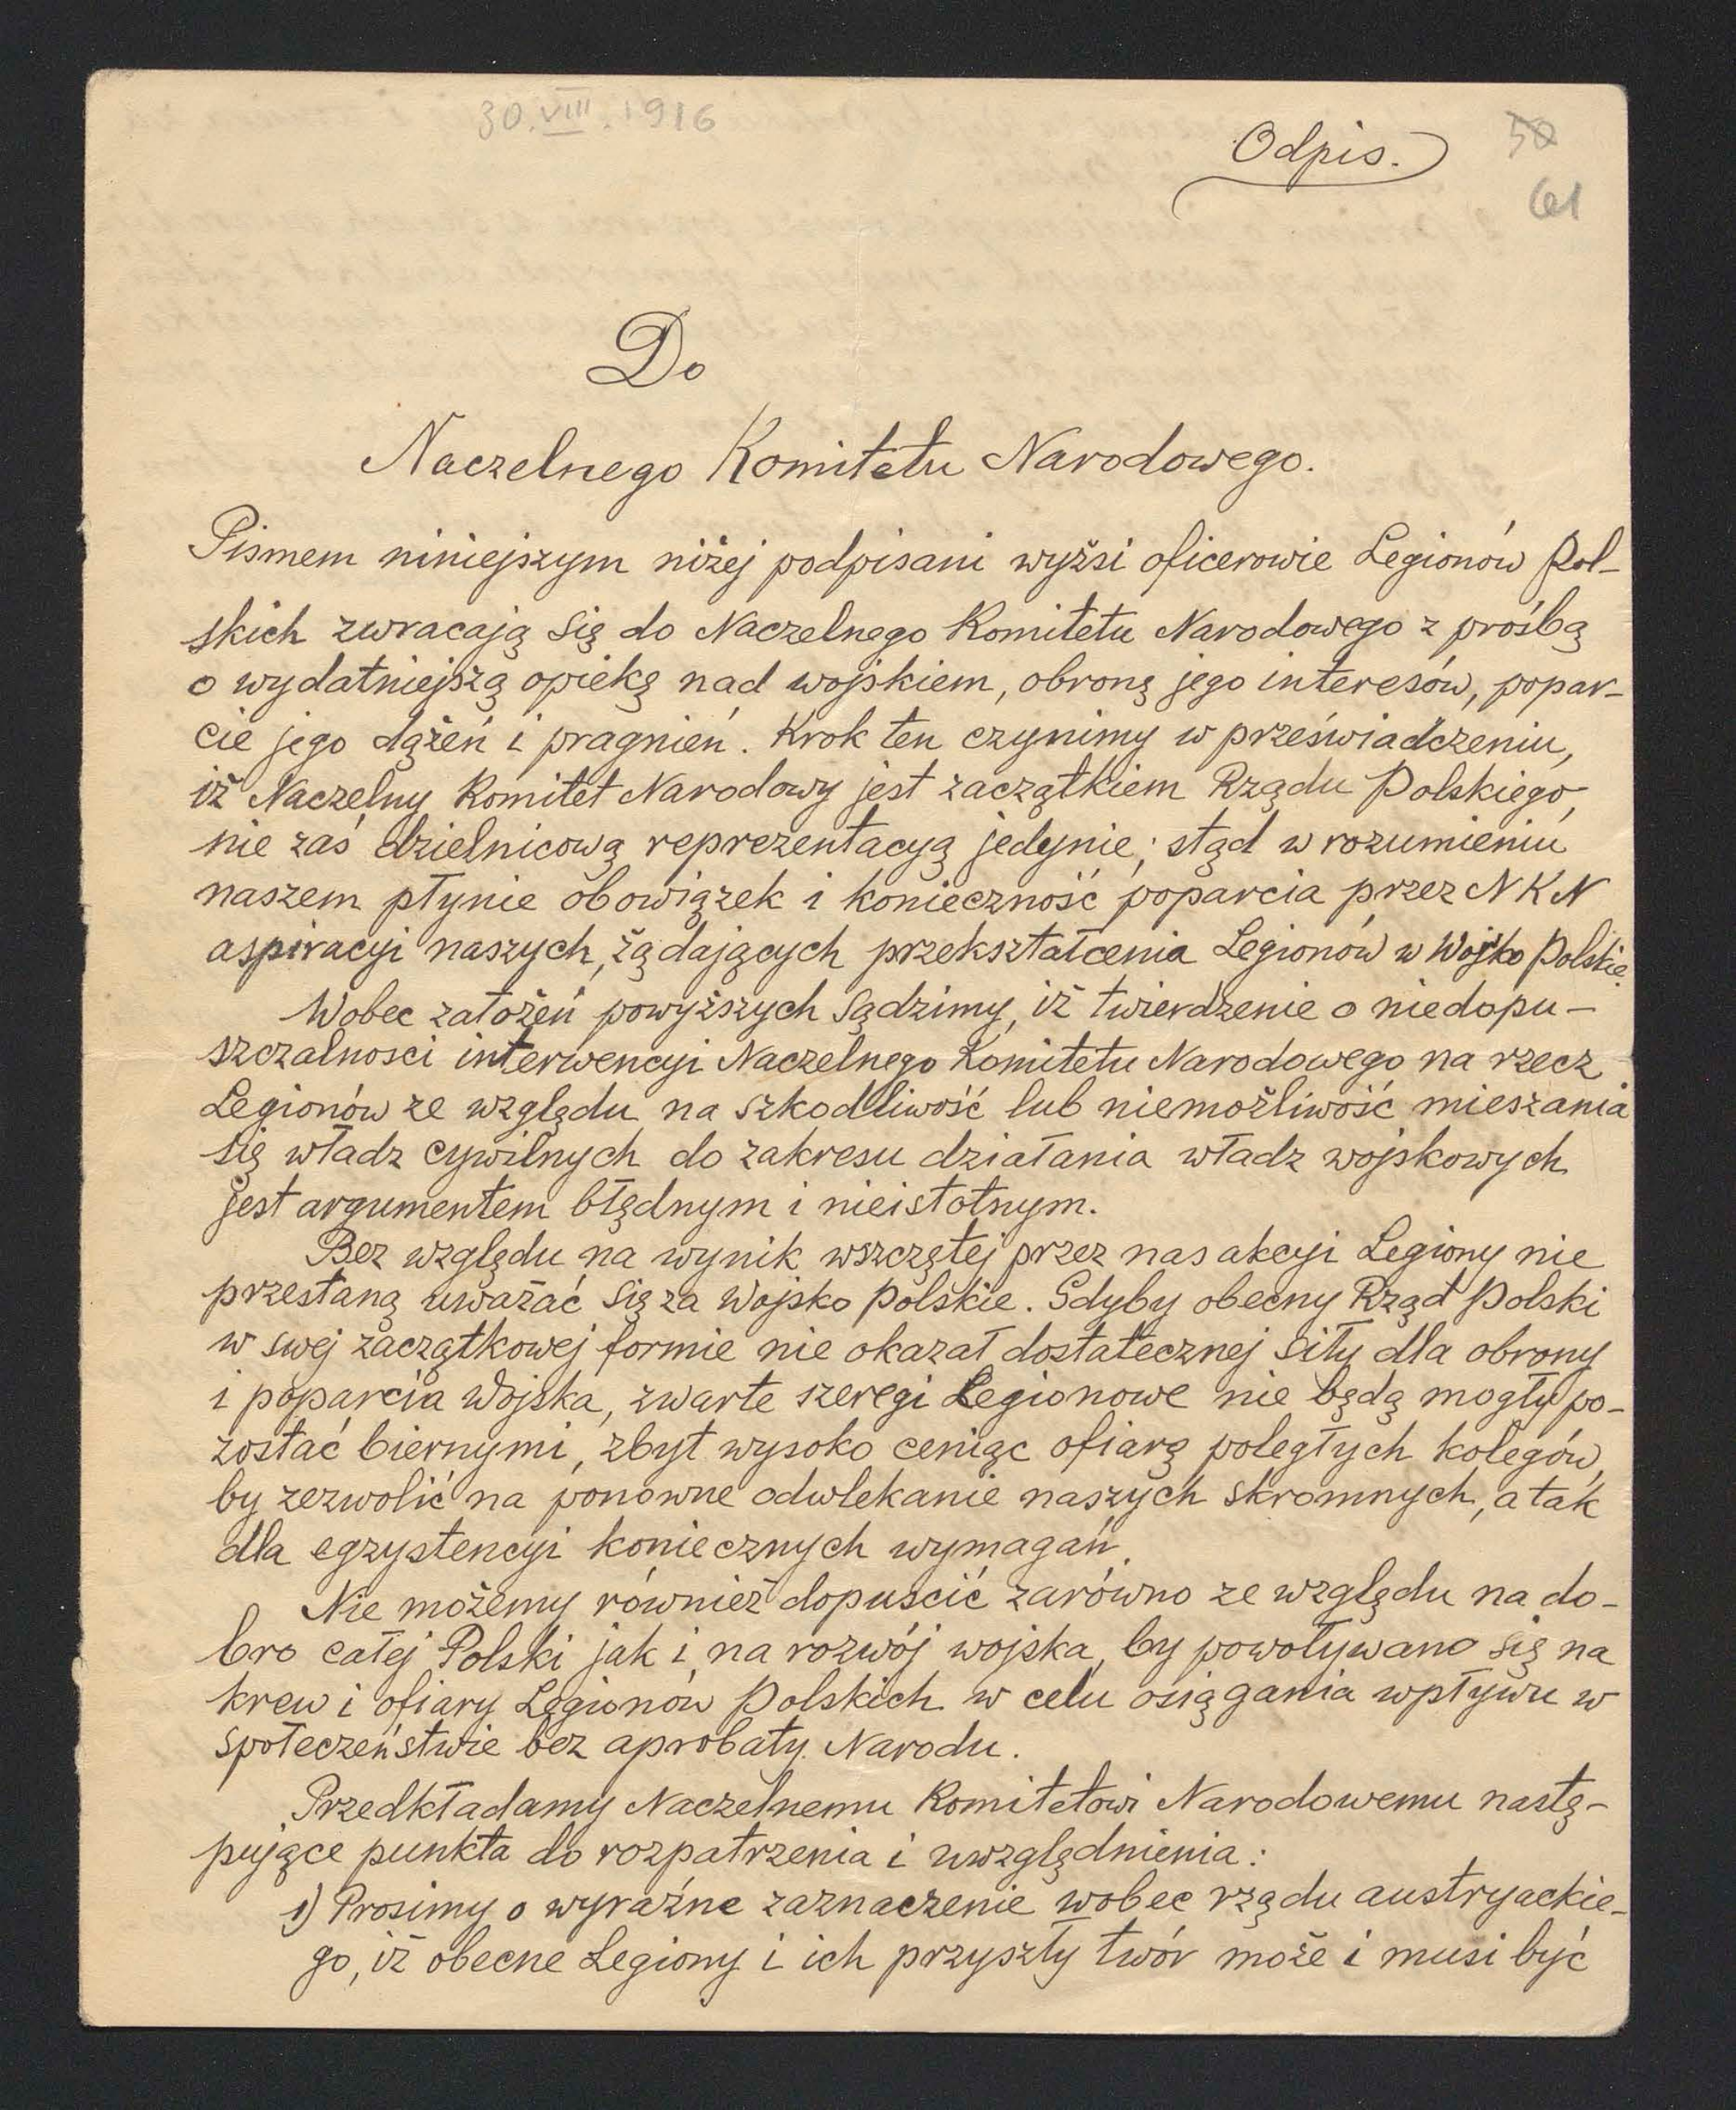 30.VIII.1916
Odpis.
50
61
Do
Naczelnego Komitetu Narodowego.
Pismem niniejszym niżej podpisani wyżsi oficerowie Legionów Pol-
skich zwracają się do Naczelnego Komitetu Narodowego z prośbą
o wydatniejszą opiekę nad wojskiem, obronę jego interesów, popar-
cie jego dążeń i pragnień. Krok ten czynimy w przeświadczeniu,
iż Naczelny Komitet Narodowy jest zaczątkiem Rządu Polskiego,
nie zaś dzielnicową reprezentacyą jedynie; stąd w rozumieniu
naszem płynie obowiązek i konieczność poparcia przez NKN
aspiracyi naszych, żądających przekształcenia Legionów w Wojsko Polskie.
Wobec założeń powyższych sądzimy, iż twierdzenie o niedopu-
szczalnosci interwencyi Naczelnego Komitetu Narodowego na rzecz
Legionów ze względu na szkodliwość lub niemożliwość mieszania
się władz cywilnych do zakresu działania władz wojskowych
jest argumentem błędnym i nieistotnym.
Bez względu na wynik wszczętej przez nas akcyi Legiony nie
przestaną uważać się za Wojsko Polskie. Gdyby obecny Rząd Polski
w swej zaczątkowej formie nie okazał dostatecznej siły dla obrony
i poparcia Wojska, zwarte szeregi Legionowe nie będą mogły po-
zostać biernymi, zbyt wysoko ceniąc ofiarę poległych kolegów,
by zezwolić na ponowne odwlekanie naszych skromnych, a tak
dla egzystencyi koniecznych wymagań.
Nie możemy również dopuścić zarówno ze względu na do-
bro całej Polski jak i na rozwój wojska, by powoływano się na
krew i ofiary Legionów Polskich w celu osiągania wpływu w
społeczeństwie bez aprobaty Narodu.
Przedkładamy Naczelnemu Komitetowi Narodowemu nastę-
pujące punkta do rozpatrzenia i uwzględnienia:
1) Prosimy o wyraźne zaznaczenie wobec rządu austryackie-
go, iż obecne Legiony i ich przyszły twór może i musi być